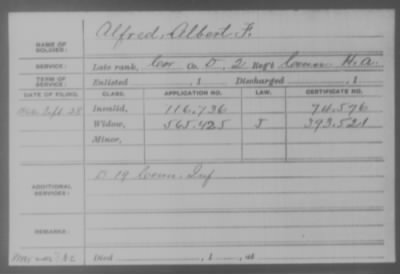 NAME OF SOLDIER: Alfred, Albert F.
SERVICE: Late rank, Cor Co. D, 2 Reg't Conn. H. A.
TERM OF SERVICE: Enlisted , 1 Discharged , 1
DATE OF FILING. CLASS. APPLICATION NO. LAW. CERTIFICATE NO.
Invalid, 116.736 74.596
Widow, 565.425 J 393.521
Minor,
ADDITIONAL SERVICES: D 19 Conn. Inf
REMARKS:
Died , 1 , at